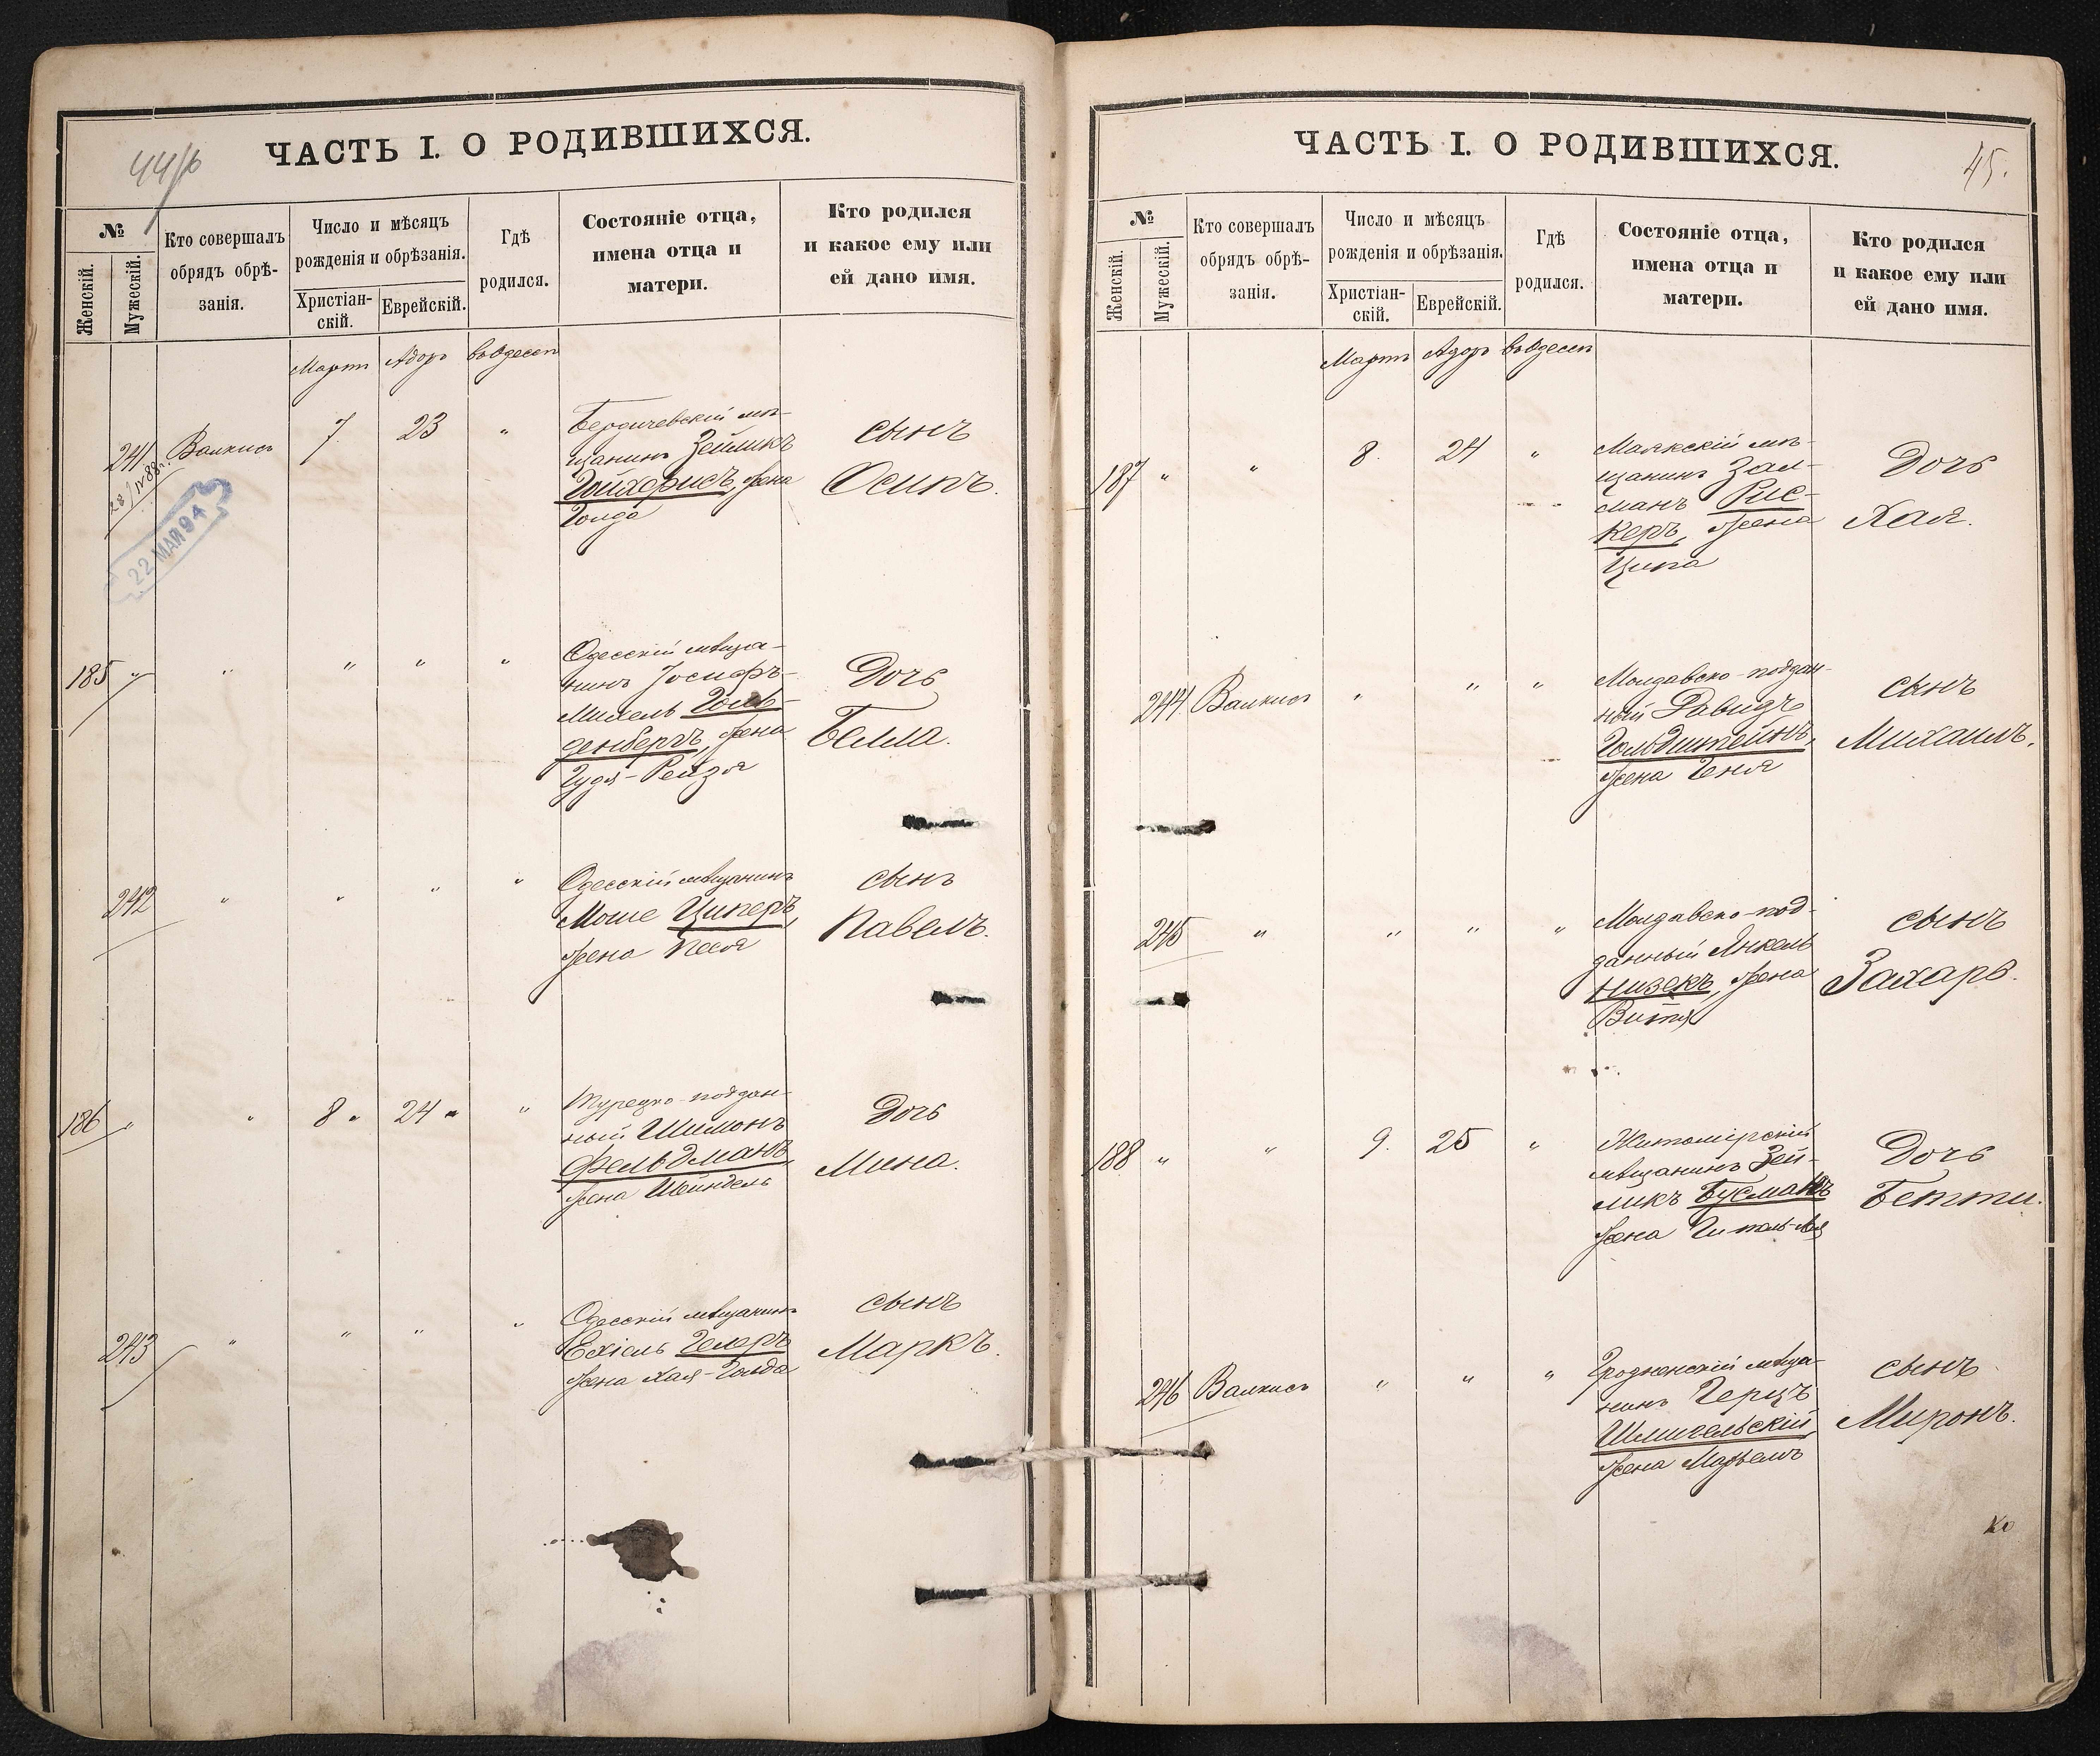 44/б
ЧАСТЬ I. О РОДИВШИХСЯ.
№
Женскій.
Мужескій.
Кто совершалъ
обрядъ обрѣ-
занія.
Число и мѣсяцъ
рожденія и обрѣзанія.
Христіан-
скій.
Еврейскій.
Гдѣ
родился.
Состояніе отца,
имена отца и
матери.
Кто родился
и какое ему или
ей дано имя.
Мартъ Адоръ въ Одессѣ
241 Валкисъ 7. 23 "
22 МАЙ 94
Бердичевскій мѣ-
щанинъ Зейликъ
Гойхерисъ, жена
Голда
сынъ
Осипъ.
185 " " " " "
Одесскій мѣща-
нинъ Іосифъ-
Михель Голь-
денбергъ, жена
Гудя-Рейзя
Дочь
Белла.
242 " " " "
Одесскій мѣщанинъ
Моше Циперъ,
жена Песя
сынъ
Павелъ.
186 " " 8 " 24 " "
Турецко-поддан-
ный Шимонъ
Фельдманъ,
жена Шейндель
Дочь
Мина.
243 " " " "
Одесскій мѣщанинъ
Ехіель Гелеръ
жена Хая-Голда
сынъ
Маркъ.
45.
ЧАСТЬ I. О РОДИВШИХСЯ.
№
Женскій.
Мужескій.
Кто совершалъ
обрядъ обрѣ-
занія.
Число и мѣсяцъ
рожденія и обрѣзанія.
Христіан-
скій.
Еврейскій.
Гдѣ
родился.
Состояніе отца,
имена отца и
матери.
Кто родился
и какое ему или
ей дано имя.
Мартъ Адоръ въ Одессѣ
187 " " 8. 24 "
Маякскій мѣ-
щанинъ Зал-
манъ Рис-
керъ, жена
Ципа
Дочь
Хая.
244 Валкисъ " " "
Молдавско-поддан-
ный Давидъ
Гольдштейнъ,
жена Геня
сынъ
Михаилъ.
245 " " " "
Молдавско-под-
данный Янкель
Низекъ, жена
Витя
сынъ
Захаръ.
188 " " 9. 25 "
Житомірскій
мѣщанинъ Зей-
ликъ Бусманъ
жена
Дочь
Бетти.
246 Валкисъ " " "
Гродненскій мѣща-
нинъ Герцъ
Шмигельскій,
жена Марьемъ
сынъ
Миронъ.